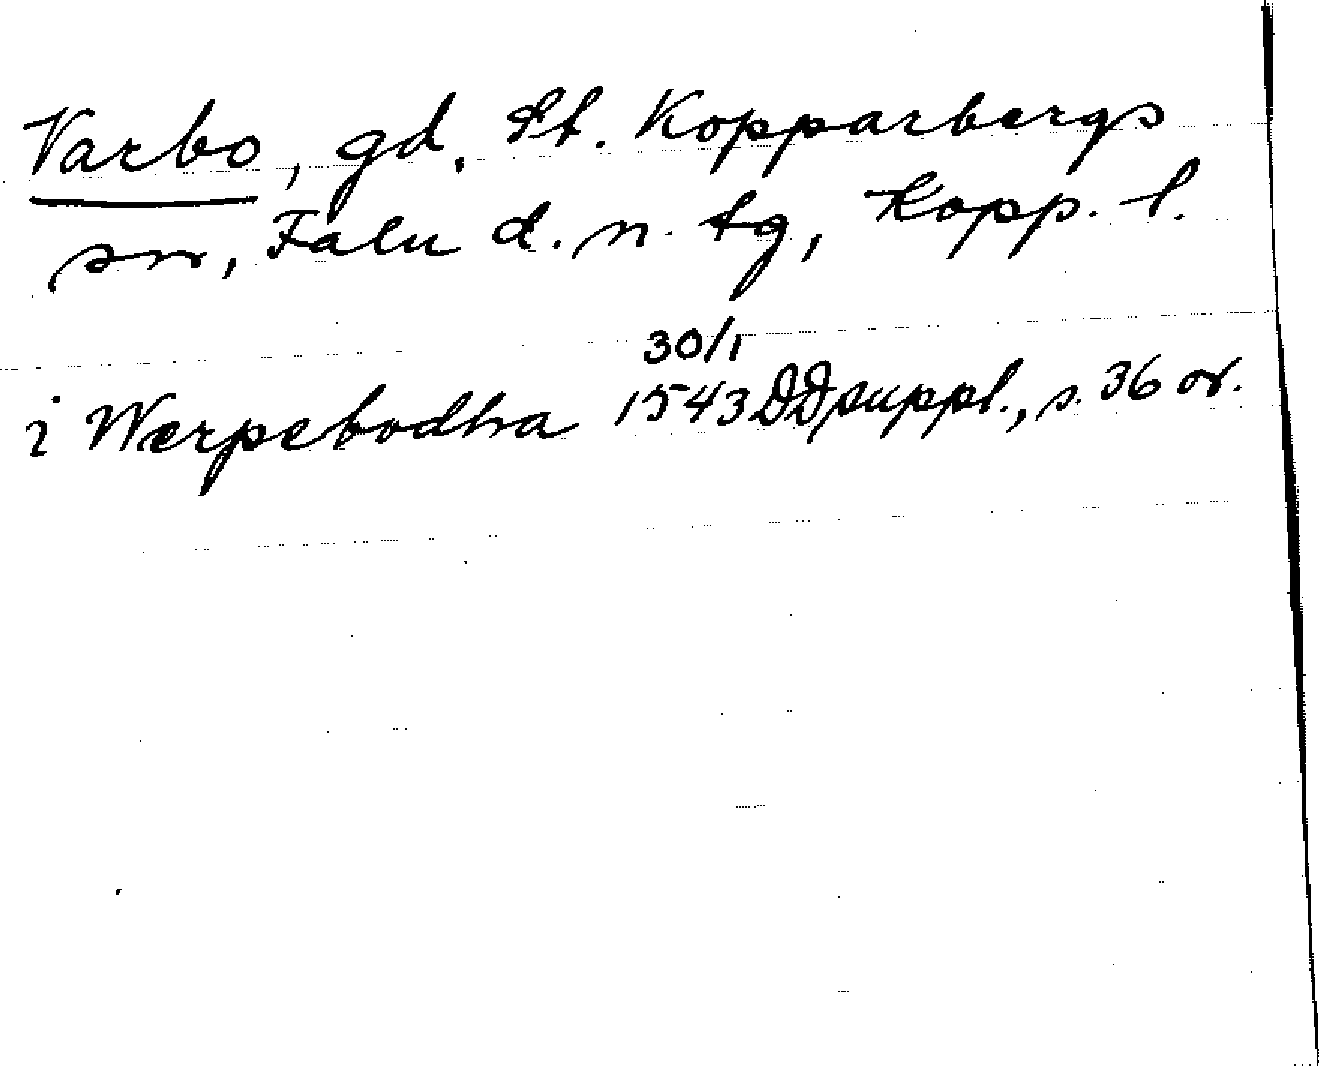 Varbo, gd, St. Kopparbergs
sn, Falu d. n. tg, Kopp. l.
30/1
i Werpebodha 1543 DD suppl., s. 36 or.